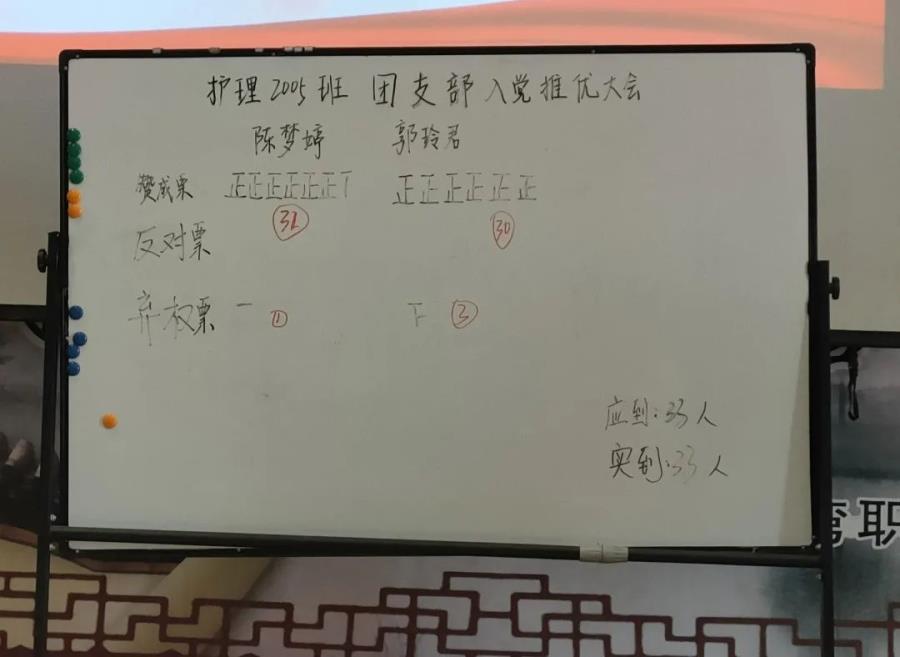 护理2005班 团支部入党推优大会
陈梦婷 郭玲君
赞成票 正正正正正正丅 正正正正正正
32 30
反对票
弃权票 一 下
① ③
应到:33人
实到:33人
职